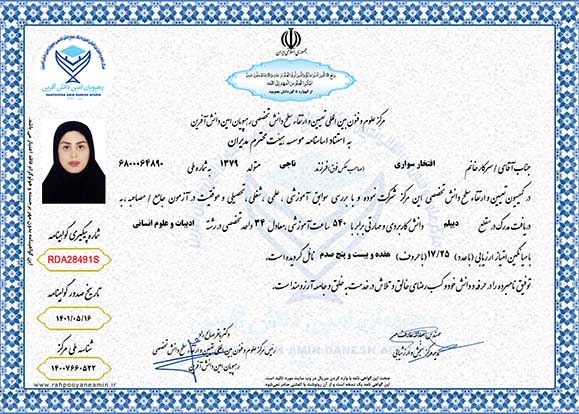 جمهوری اسلامی ایران
رهپویان امین دانش آفرین
RAHPOOYAN AMIN DANESH AFARIN
ز گهواره تا گور دانش بجویید
مرکز علوم و فنون بین المللی تعیین و ارتقاء سطح دانش تخصصی رهپویان امین دانش آفرین
به استناد اساسنامه موسسه، هیئت محترم مدیران
جناب آقای / سرکار خانم افتخار سواری (صاحب عکس فوق) فرزند ناجی متولد ۱۳۷۹ به شماره ملی ۶۸۰۰۰۶۴۸۹۰
در کمیسیون تعیین و ارتقاء سطح دانش تخصصی این مرکز شرکت نموده و با بررسی سوابق آموزشی، علمی، شغلی، تحصیلی و موفقیت در آزمون جامع / مصاحبه، به
دریافت مدرک در مقطع دیپلم دانش کاربردی و مهارتی برابر با ۵۴۰ ساعت آموزشی معادل ۳۴ واحد تخصصی در رشته ادبیات و علوم انسانی
با میانگین امتیاز ارزیابی (باعدد) ۱۷/۲۵ (باحروف) هفده و بیست و پنج صدم نائل گردیده است.
توفیق نامبرده را در حرفه و دانش خود و کسب رضای خالق و تلاش در خدمت به خلق و جامعه آرزومند است.
شماره پیگیری گواینامه
RDA28491S
تاریخ صدور گواینامه
۱۴۰۱/۰۵/۱۶
شناسه ملی مرکز
۱۴۰۰۷۶۶۰۵۲۲
رئیس مرکز علوم و فنون بین المللی تعیین و ارتقاء سطح دانش تخصصی
رهپویان امین دانش آفرین
AMIN DANESH AFARIN
www.rahpooyaneamin.ir